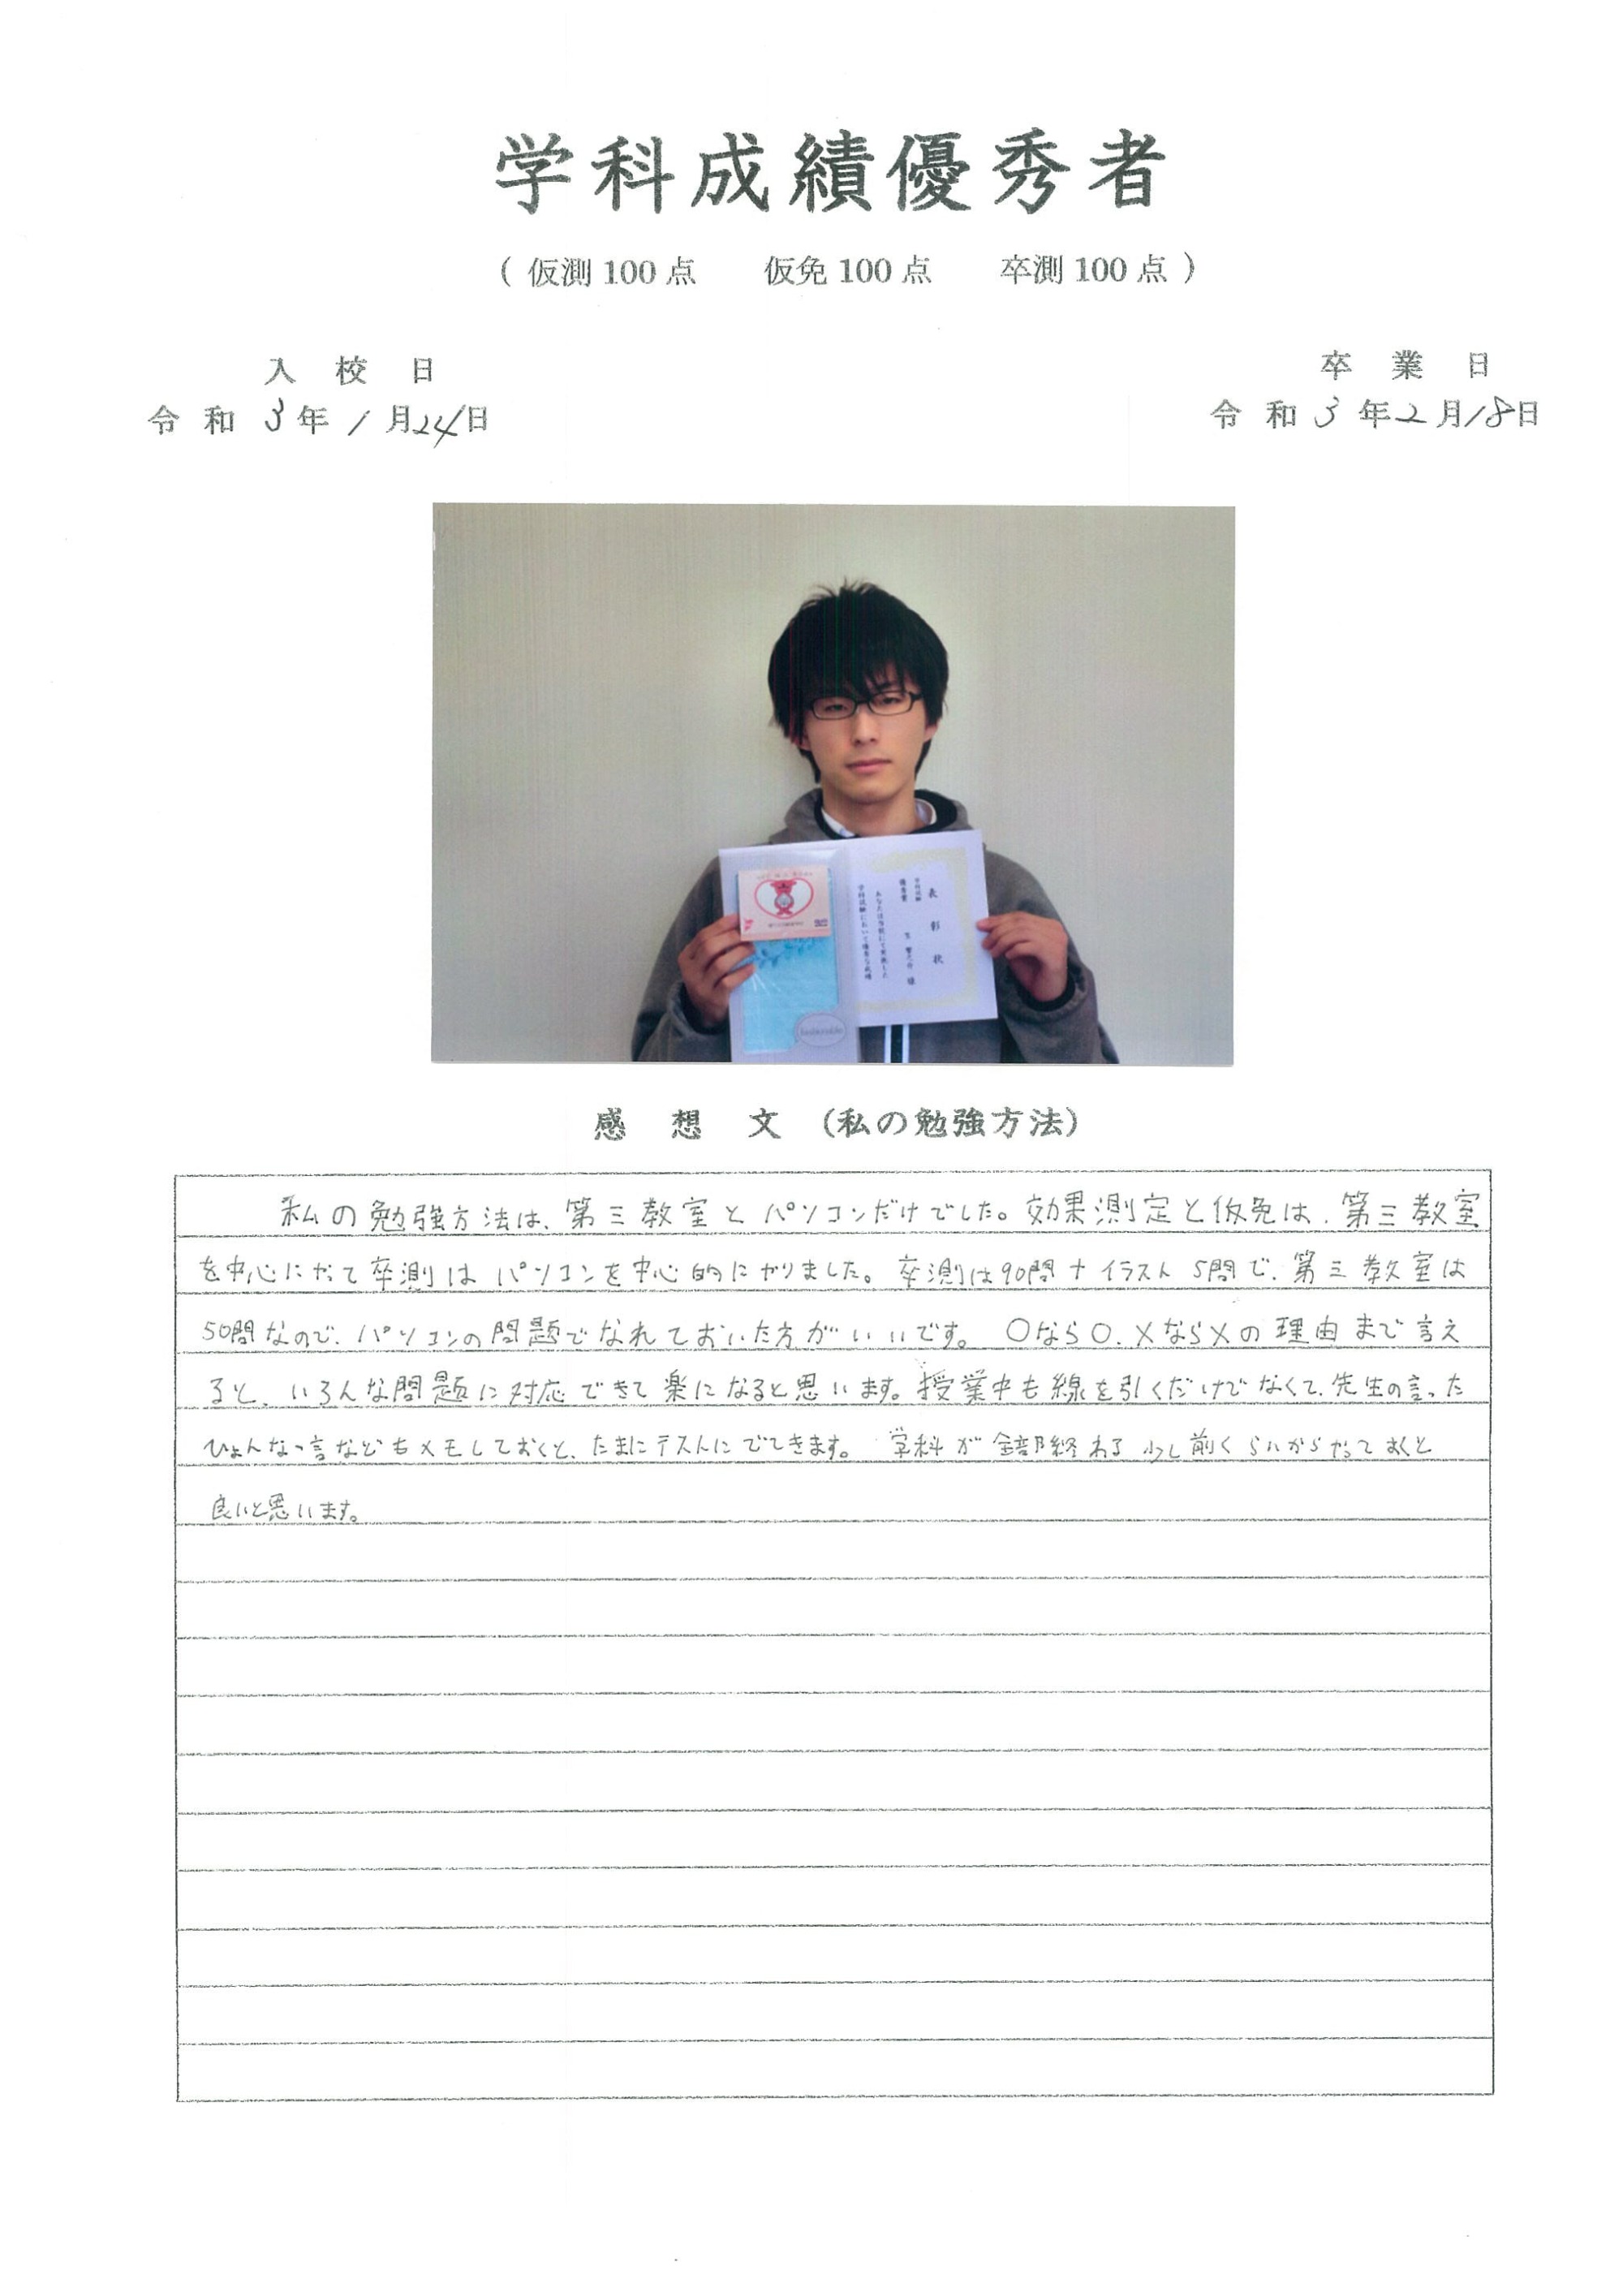 学科成績優秀者
( 仮測100点 仮免100点 卒測100点 )
入校日
令和3年1月24日
卒業日
令和3年2月18日
表彰状
学科試験
優秀賞
様
あなたは当校にて実施した
学科試験において優秀な成績
感想文 (私の勉強方法)
私の勉強方法は、第三教室とパソコンだけでした。効果測定と仮免は、第三教室
を中心にやって卒測はパソコンを中心的にやりました。卒測は90問+イラスト5問で、第三教室は
50問なので、パソコンの問題でなれておいた方がいいです。〇なら〇、×なら×の理由まで言え
ると、いろんな問題に対応できて楽になると思います。授業中も線を引くだけでなくて、先生の言った
ひょんな一言などもメモしておくと、たまにテストにでてきます。学科が全部終わる少し前くらいからやっておくと
良いと思います。